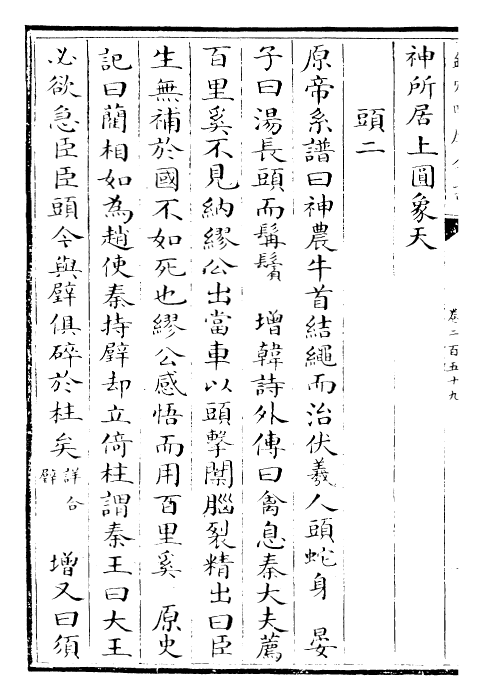 卷二百五十九
神所居上圓象天
頭二
原帝系譜曰神農牛首結繩而治伏羲人頭蛇身　晏
子曰湯長頭而髯鬢　增韓詩外傳曰禽息秦大夫薦
百里奚不見納繆公出當車以頭擊闑腦裂精出曰臣
生無補於國不如死也繆公感悟而用百里奚　原史
記曰藺相如為趙使秦持璧却立倚柱謂秦王曰大王
必欲急臣臣頭今與璧俱碎於柱矣詳合璧　增又曰須